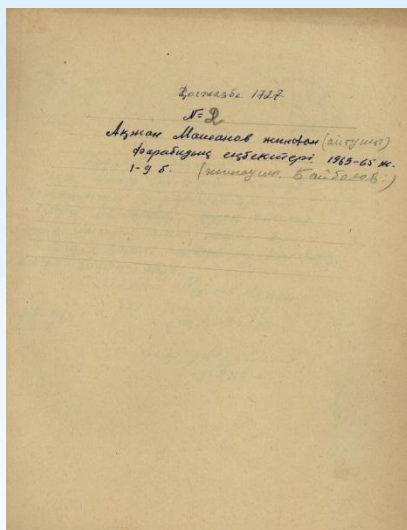 Қосжазба 1727
№ 2
Ақжан Машанов жинаған (айтушы)
Фарабидың еңбектері 1963-65 ж.
1-9 б. (жинаушы Байболов.)